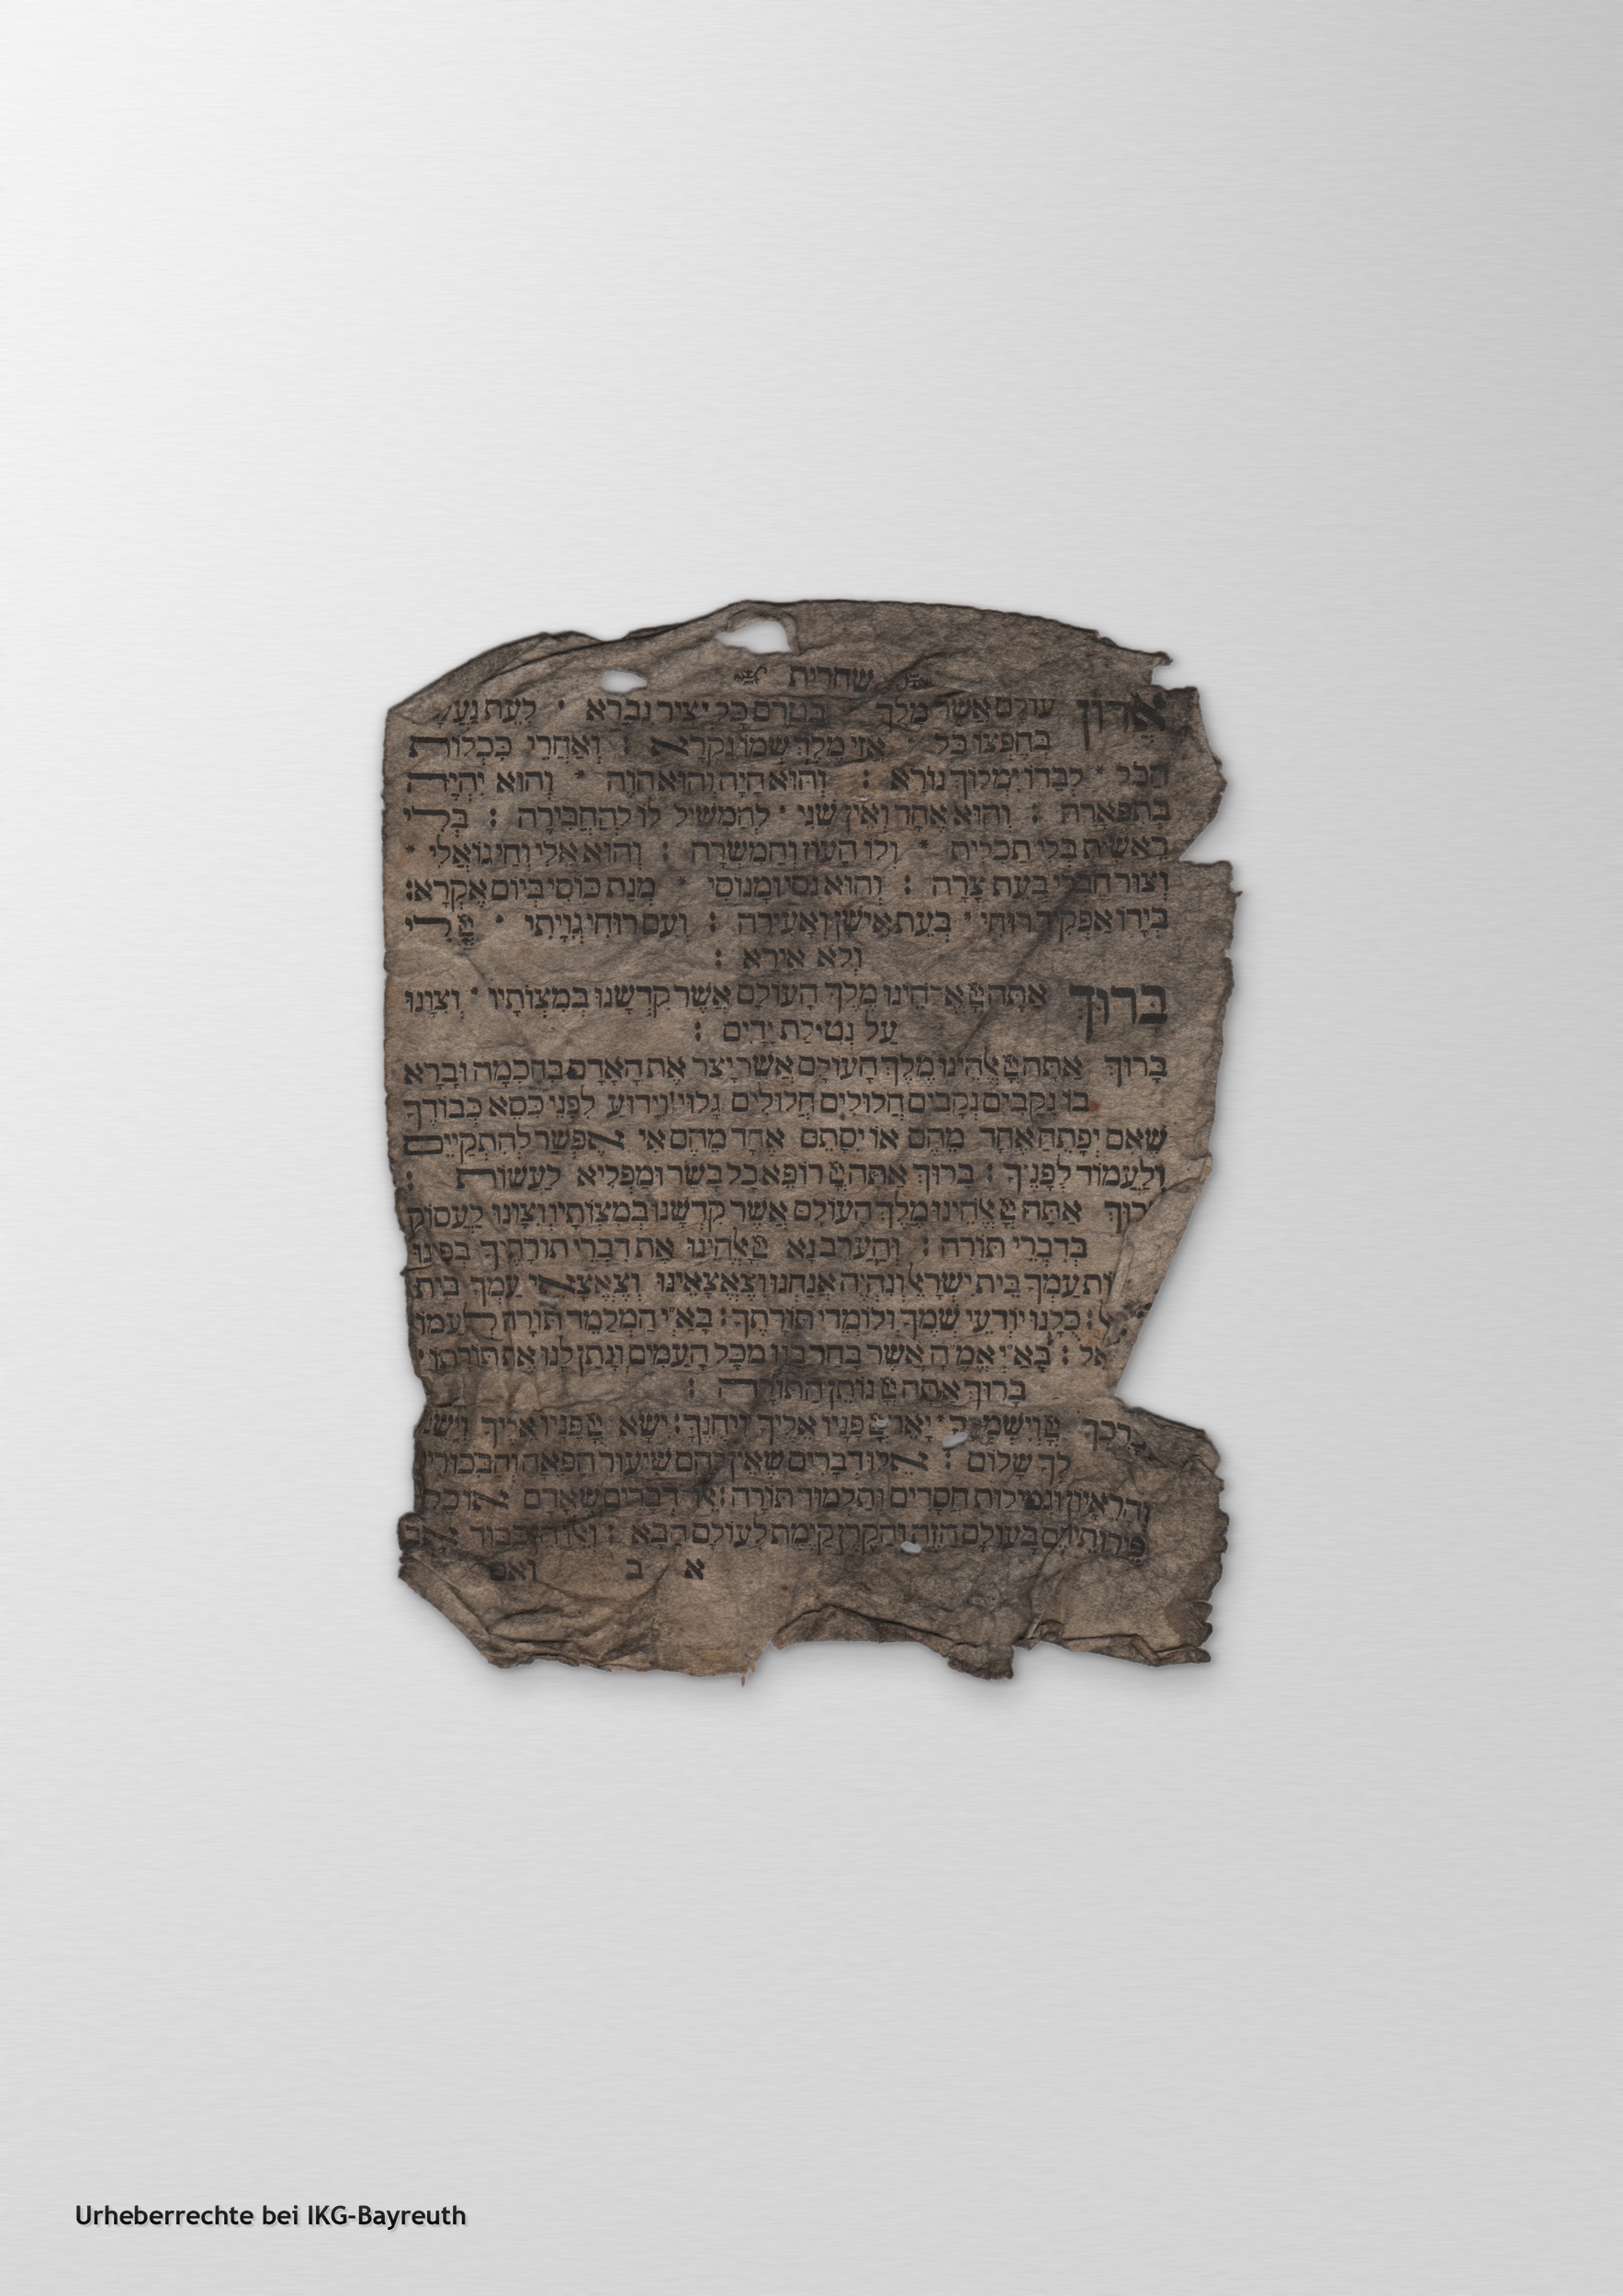 שחרית
אֲדוֹן עוֹלָם אֲשֶׁר מָלַךְ בְּטֶרֶם כָּל יְצִיר נִבְרָא • לְעֵת נַעֲשָׂ
בְּחֶפְצוֹ כֹּל אֲזַי מֶלֶךְ שְׁמוֹ נִקְרָא : וְאַחֲרֵי כִּכְלוֹת
הַכֹּל * לְבַדּוֹ יִמְלוֹךְ נוֹרָא : וְהוּא הָיָה וְהוּא הֹוֶה * וְהוּא יִהְיֶה
בְּתִפְאָרָה : וְהוּא אֶחָד וְאֵין שֵׁנִי • לְהַמְשִׁיל לוֹ לְהַחְבִּירָה : בְּלִי
רֵאשִׁית בְּלִי תַכְלִית * וְלוֹ הָעוֹז וְהַמִּשְׂרָה : וְהוּא אֵלִי וְחַי גּוֹאֲלִי *
וְצוּר חֶבְלִי בְּעֵת צָרָה : וְהוּא נִסִּי וּמָנוֹסִי * מְנָת כּוֹסִי בְּיוֹם אֶקְרָא :
בְּיָדוֹ אַפְקִיד רוּחִי • בְּעֵת אִישַׁן וְאָעִירָה : וְעִם רוּחִי גְּוִיָּתִי • יְיָ לִי
וְלֹא אִירָא :
בָּרוּךְ אַתָּה יְיָ אֱלֹהֵינוּ מֶלֶךְ הָעוֹלָם אֲשֶׁר קִדְּשָׁנוּ בְּמִצְוֹתָיו • וְצִוָּנוּ
עַל נְטִילַת יָדַיִם :
בָּרוּךְ אַתָּה יְיָ אֱלֹהֵינוּ מֶלֶךְ הָעוֹלָם אֲשֶׁר יָצַר אֶת הָאָדָם בְּחָכְמָה וּבָרָא
בוֹ נְקָבִים נְקָבִים חֲלוּלִים חֲלוּלִים גָּלוּי וְיָדוּעַ לִפְנֵי כִסֵּא כְבוֹדֶךָ
שֶׁאִם יִפָּתֵחַ אֶחָד מֵהֶם אוֹ יִסָּתֵם אֶחָד מֵהֶם אִי אֶפְשָׁר לְהִתְקַיֵּים
וְלַעֲמוֹד לְפָנֶיךָ : בָּרוּךְ אַתָּה יְיָ רוֹפֵא כָל בָּשָׂר וּמַפְלִיא לַעֲשׂוֹת :
רוּךְ אַתָּה יְיָ אֱלֹהֵינוּ מֶלֶךְ הָעוֹלָם אֲשֶׁר קִדְּשָׁנוּ בְּמִצְוֹתָיו וְצִוָּנוּ לַעֲסוֹק
בְּדִבְרֵי תוֹרָה : וְהַעֲרֵב נָא יְיָ אֱלֹהֵינוּ אֶת דִּבְרֵי תוֹרָתֶיךָ בְּפִינוּ
וֹת עַמְּךָ בֵּית יִשְׂרָאֵל וְנִהְיֶה אֲנַחְנוּ וְצֶאֱצָאֵינוּ וְצֶאֱצָאֵי עַמְּךָ בֵּית
: כֻּלָּנוּ יוֹדְעֵי שְׁמֶךָ וְלוֹמְדֵי תוֹרָתֶךָ : בָּאַ״י הַמְלַמֵּד תּוֹרָה לְעַמּוֹ
אֵל : בָּאַ״י אֱמֶ״הָ אֲשֶׁר בָּחַר בָּנוּ מִכָּל הָעַמִּים וְנָתַן לָנוּ אֶת תּוֹרָתוֹ •
בָּרוּךְ אַתָּה יְיָ נוֹתֵן הַתּוֹרָה :
רֶכְךָ יְיָ וְיִשְׁמְרֶךָ * יָאֵר יְיָ פָּנָיו אֵלֶיךָ וִיחֻנֶּךָּ : יִשָּׂא יְיָ פָּנָיו אֵלֶיךָ וְיָשֵׂם
לְךָ שָׁלוֹם : אֵלּוּ דְבָרִים שֶׁאֵין לָהֶם שִׁיעוּר הַפֵּאָה וְהַבִּכּוּרִים
וְהָרֵאָיוֹן וּגְמִילוּת חֲסָדִים וְתַלְמוּד תּוֹרָה : אֵלּוּ דְבָרִים שֶׁאָדָם אוֹכֵל
פֵּירוֹתֵיהֶם בָּעוֹלָם הַזֶּה וְהַקֶּרֶן קַיֶּימֶת לָעוֹלָם הַבָּא : וְאֵלּוּ הֵן כִּבּוּד אָב
א ב ואם
Urheberrechte bei IKG-Bayreuth